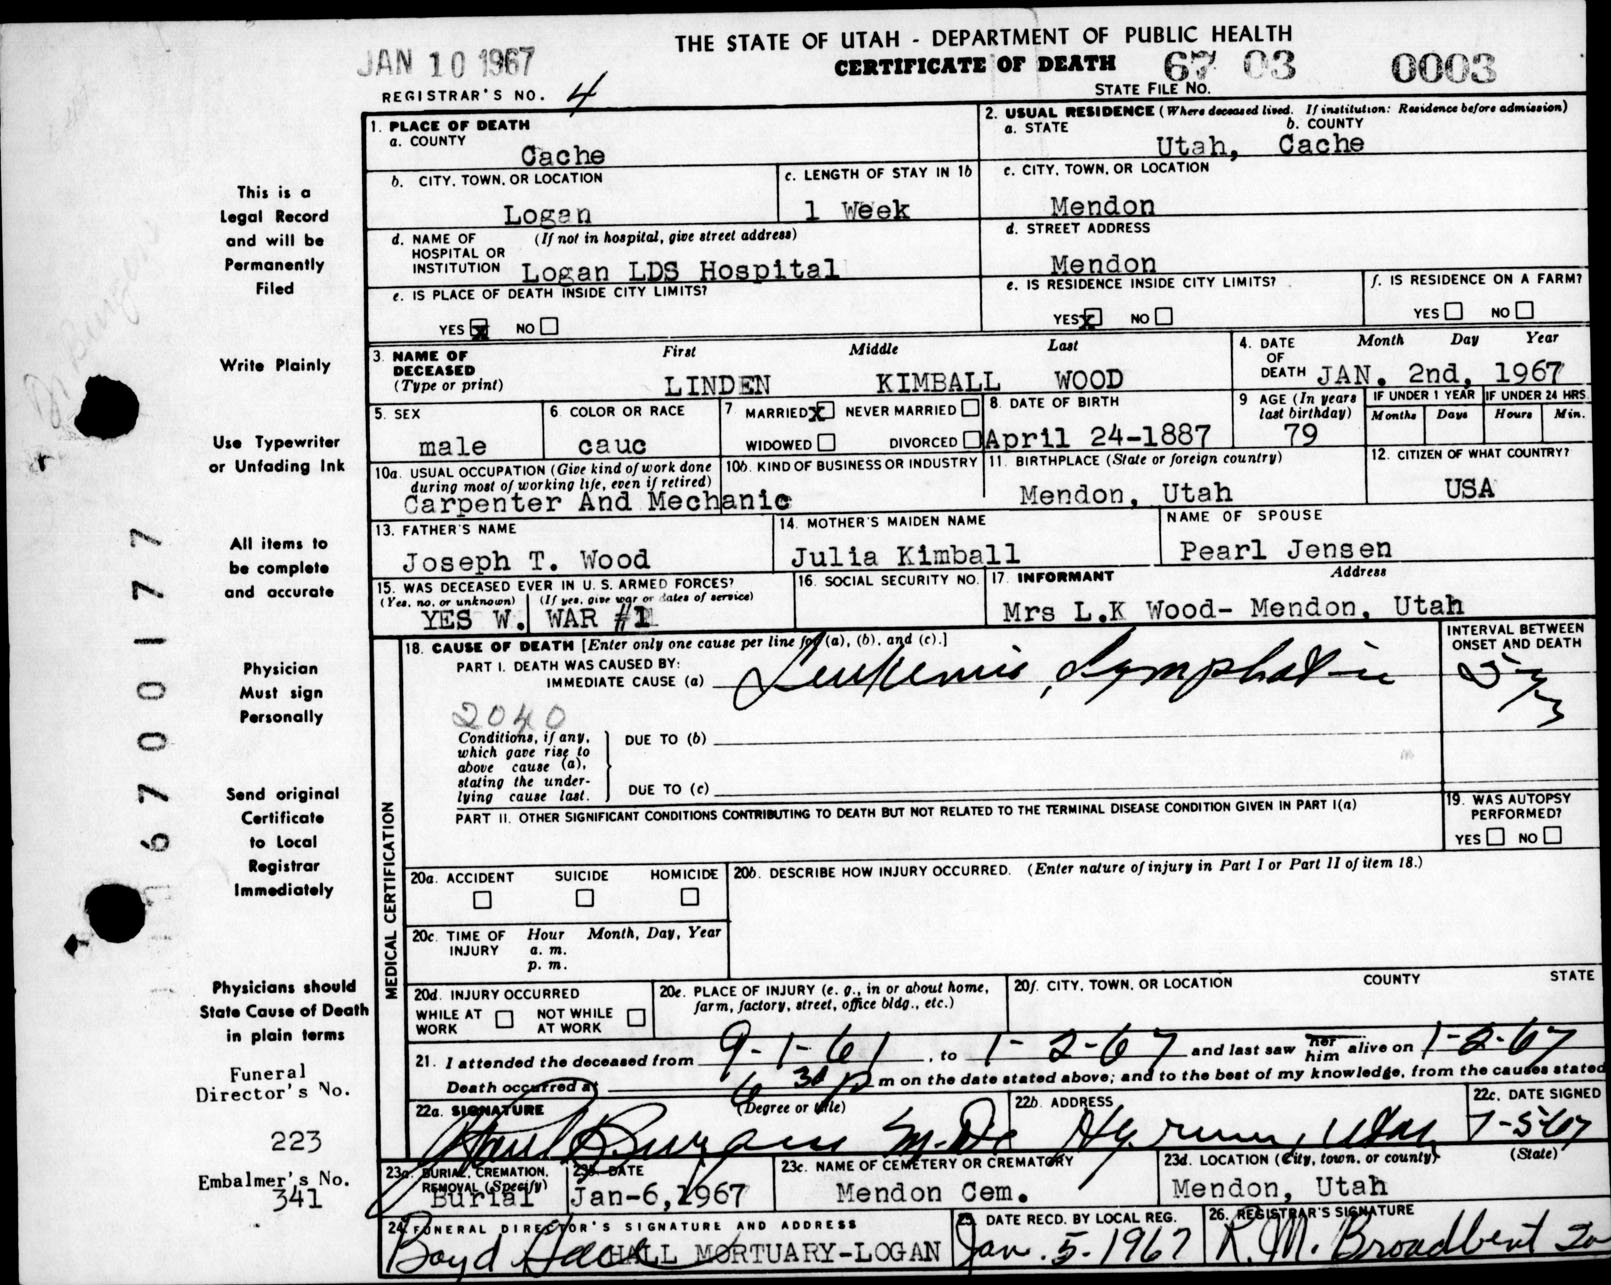 THE STATE OF UTAH - DEPARTMENT OF PUBLIC HEALTH
JAN 10 1967
CERTIFICATE OF DEATH 67 03 0003
REGISTRAR'S NO. 4
STATE FILE NO.
1. PLACE OF DEATH
a. COUNTY
Cache
2. USUAL RESIDENCE (Where deceased lived. If institution: Residence before admission)
a. STATE b. COUNTY
Utah, Cache
b. CITY, TOWN, OR LOCATION
Logan
c. LENGTH OF STAY IN 1b
1 Week
c. CITY, TOWN, OR LOCATION
Mendon
d. NAME OF HOSPITAL OR INSTITUTION (If not in hospital, give street address)
Logan LDS Hospital
d. STREET ADDRESS
Mendon
e. IS PLACE OF DEATH INSIDE CITY LIMITS?
YES X NO
e. IS RESIDENCE INSIDE CITY LIMITS?
YES X NO
f. IS RESIDENCE ON A FARM?
YES NO
3. NAME OF DECEASED (Type or print)
First Middle Last
LINDEN KIMBALL WOOD
4. DATE OF DEATH
Month Day Year
JAN. 2nd, 1967
5. SEX
male
6. COLOR OR RACE
cauc
7 MARRIED X NEVER MARRIED
WIDOWED DIVORCED
8. DATE OF BIRTH
April 24-1887
9 AGE (In years last birthday)
79
IF UNDER 1 YEAR
Months Days
IF UNDER 24 HRS.
Hours Min.
10a. USUAL OCCUPATION (Give kind of work done during most of working life, even if retired)
Carpenter And Mechanic
10b. KIND OF BUSINESS OR INDUSTRY
11. BIRTHPLACE (State or foreign country)
Mendon, Utah
12. CITIZEN OF WHAT COUNTRY?
USA
13. FATHER'S NAME
Joseph T. Wood
14. MOTHER'S MAIDEN NAME
Julia Kimball
NAME OF SPOUSE
Pearl Jensen
15. WAS DECEASED EVER IN U. S. ARMED FORCES?
(Yes, no, or unknown) (If yes, give war or dates of service)
YES W. WAR #1
16. SOCIAL SECURITY NO.
17. INFORMANT Address
Mrs L.K Wood- Mendon, Utah
MEDICAL CERTIFICATION
18. CAUSE OF DEATH [Enter only one cause per line for (a), (b), and (c).]
PART I. DEATH WAS CAUSED BY:
IMMEDIATE CAUSE (a) Leukemia, Lymphatic
INTERVAL BETWEEN ONSET AND DEATH
2040
Conditions, if any, which gave rise to above cause (a), stating the underlying cause last.
DUE TO (b)
DUE TO (c)
PART II. OTHER SIGNIFICANT CONDITIONS CONTRIBUTING TO DEATH BUT NOT RELATED TO THE TERMINAL DISEASE CONDITION GIVEN IN PART I(a)
19. WAS AUTOPSY PERFORMED?
YES NO
20a. ACCIDENT SUICIDE HOMICIDE
20b. DESCRIBE HOW INJURY OCCURRED. (Enter nature of injury in Part I or Part II of item 18.)
20c. TIME OF INJURY
Hour Month, Day, Year
a. m.
p. m.
20d. INJURY OCCURRED
WHILE AT WORK NOT WHILE AT WORK
20e. PLACE OF INJURY (e. g., in or about home, farm, factory, street, office bldg., etc.)
20f. CITY, TOWN, OR LOCATION COUNTY STATE
21. I attended the deceased from 9-1-61, to 1-2-67 and last saw her him alive on 1-2-67
Death occurred at 6 30 p m on the date stated above; and to the best of my knowledge, from the causes stated
22a. SIGNATURE (Degree or title)
M.D.
22b. ADDRESS
Hyrum, Utah
22c. DATE SIGNED
1-5-67
23a. BURIAL, CREMATION, REMOVAL (Specify)
Burial
23b. DATE
Jan-6, 1967
23c. NAME OF CEMETERY OR CREMATORY
Mendon Cem.
23d. LOCATION (City, town, or county) (State)
Mendon, Utah
24. FUNERAL DIRECTOR'S SIGNATURE AND ADDRESS
Boyd Hall HALL MORTUARY-LOGAN
25. DATE RECD. BY LOCAL REG.
Jan. 5-1967
26. REGISTRAR'S SIGNATURE
R. M. Broadbent
This is a
Legal Record
and will be
Permanently
Filed
Write Plainly
Use Typewriter
or Unfading Ink
All items to
be complete
and accurate
Physician
Must sign
Personally
Send original
Certificate
to Local
Registrar
Immediately
Physicians should
State Cause of Death
in plain terms
Funeral
Director's No.
223
Embalmer's No.
341
6700177